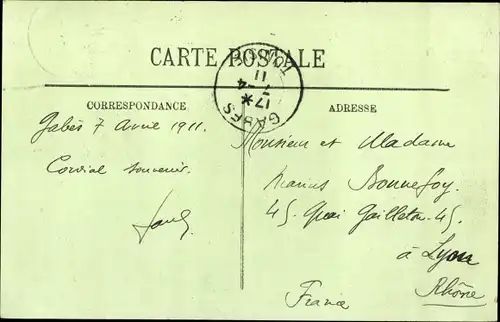 CARTE POSTALE
GABES
17 *
7-4
11
CORRESPONDANCE
ADRESSE
Gabès 7 Avril 1911.
Cordial souvenir.
Monsieur et Madame
Marius Bonnefoy.
45. Quai Gailleton. 45.
à Lyon
Rhône
France